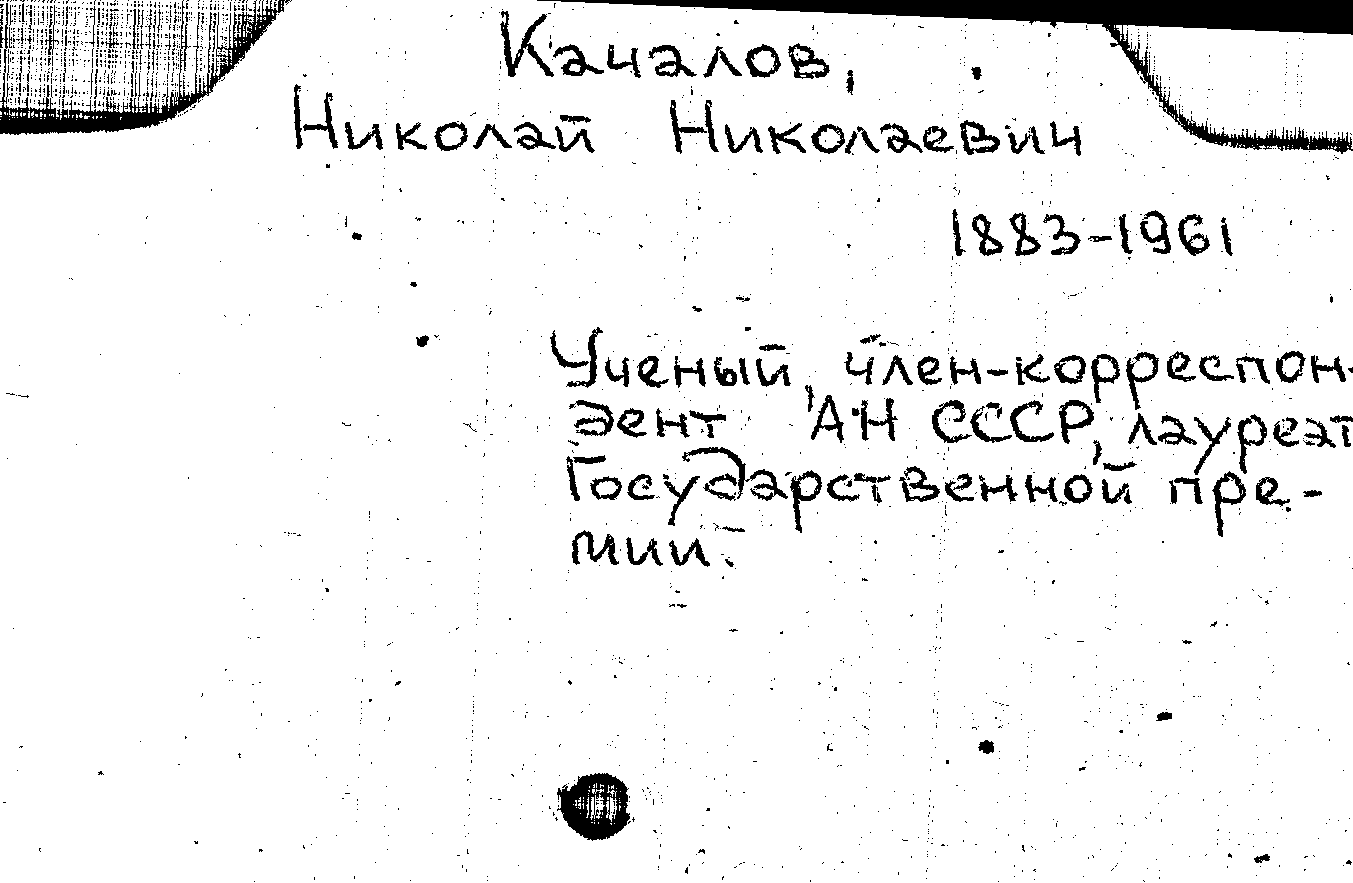 Качалов,
Николай Николаевич
1883-1961
Ученый, член-корреспон-
дент АН СССР, лауреат
Государственной пре-
мии.